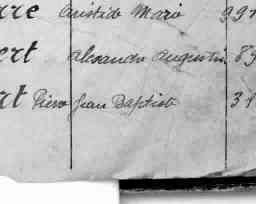 rre Aristide Marie 991
ert Alexandre Augustin 89
rt Pierre Jean Baptiste 31